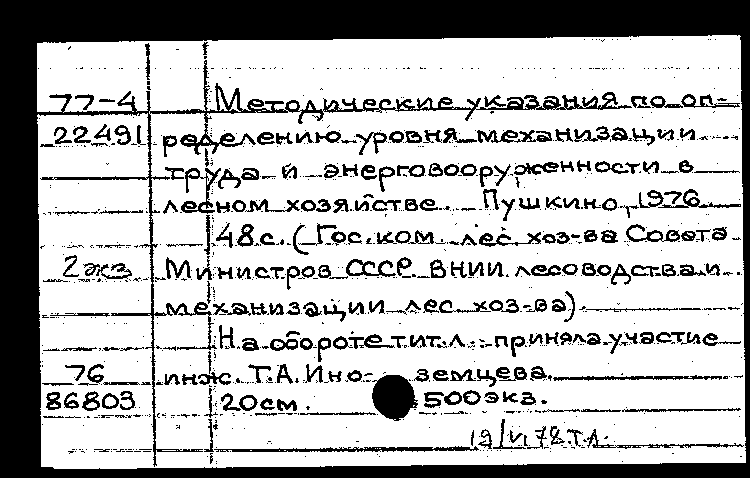 77-4 Методические указания по оп-
22491 ределению уровня механизации
труда и энерговооруженности в
лесном хозяйстве. Пушкино, 1976
48с. (Гос. ком. лес. хоз-ва Совета
2 экз Министров СССР. ВНИИ лесоводства и
механизации лес. хоз-ва).
На обороте тит. л.: приняла участие
76 инж. Т.А. Ино- земцева.
86803 20см. 500экз.
19/VI 78 Т.Л.